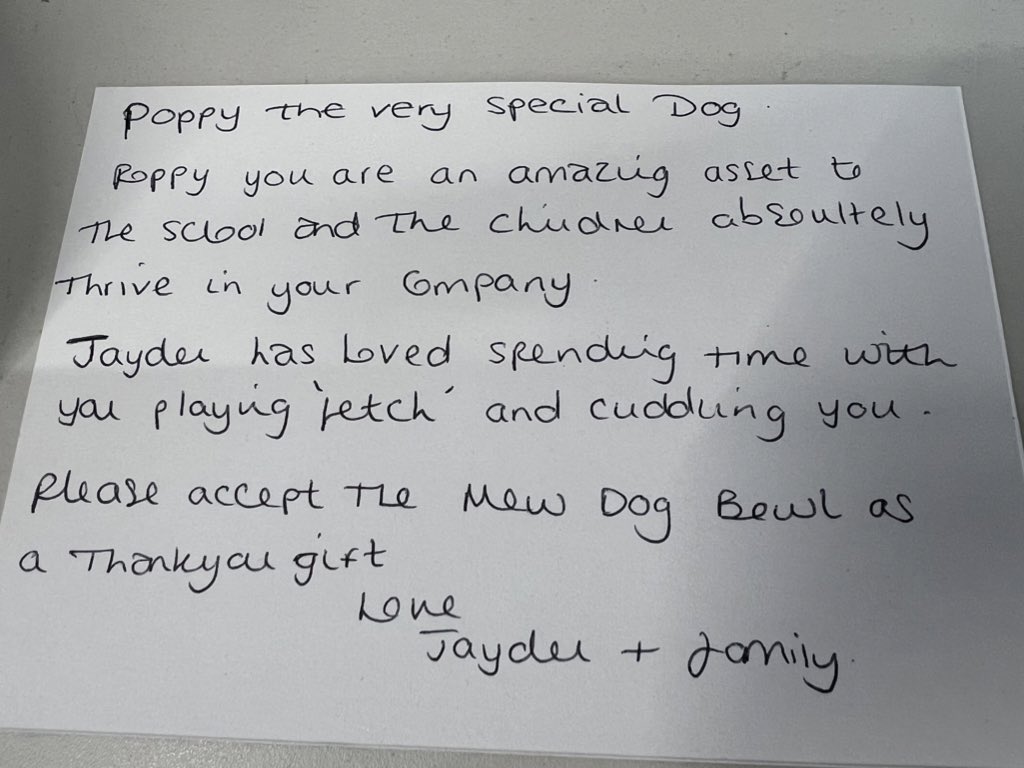 Poppy the very special Dog.
Poppy you are an amazing asset to
The School and The Children absoultely
Thrive in your Company.
Jayden has Loved spending time with
you playing 'fetch' and cuddling you.
Please accept The New Dog Bowl as
a Thankyou gift
Love
Jayden + family.